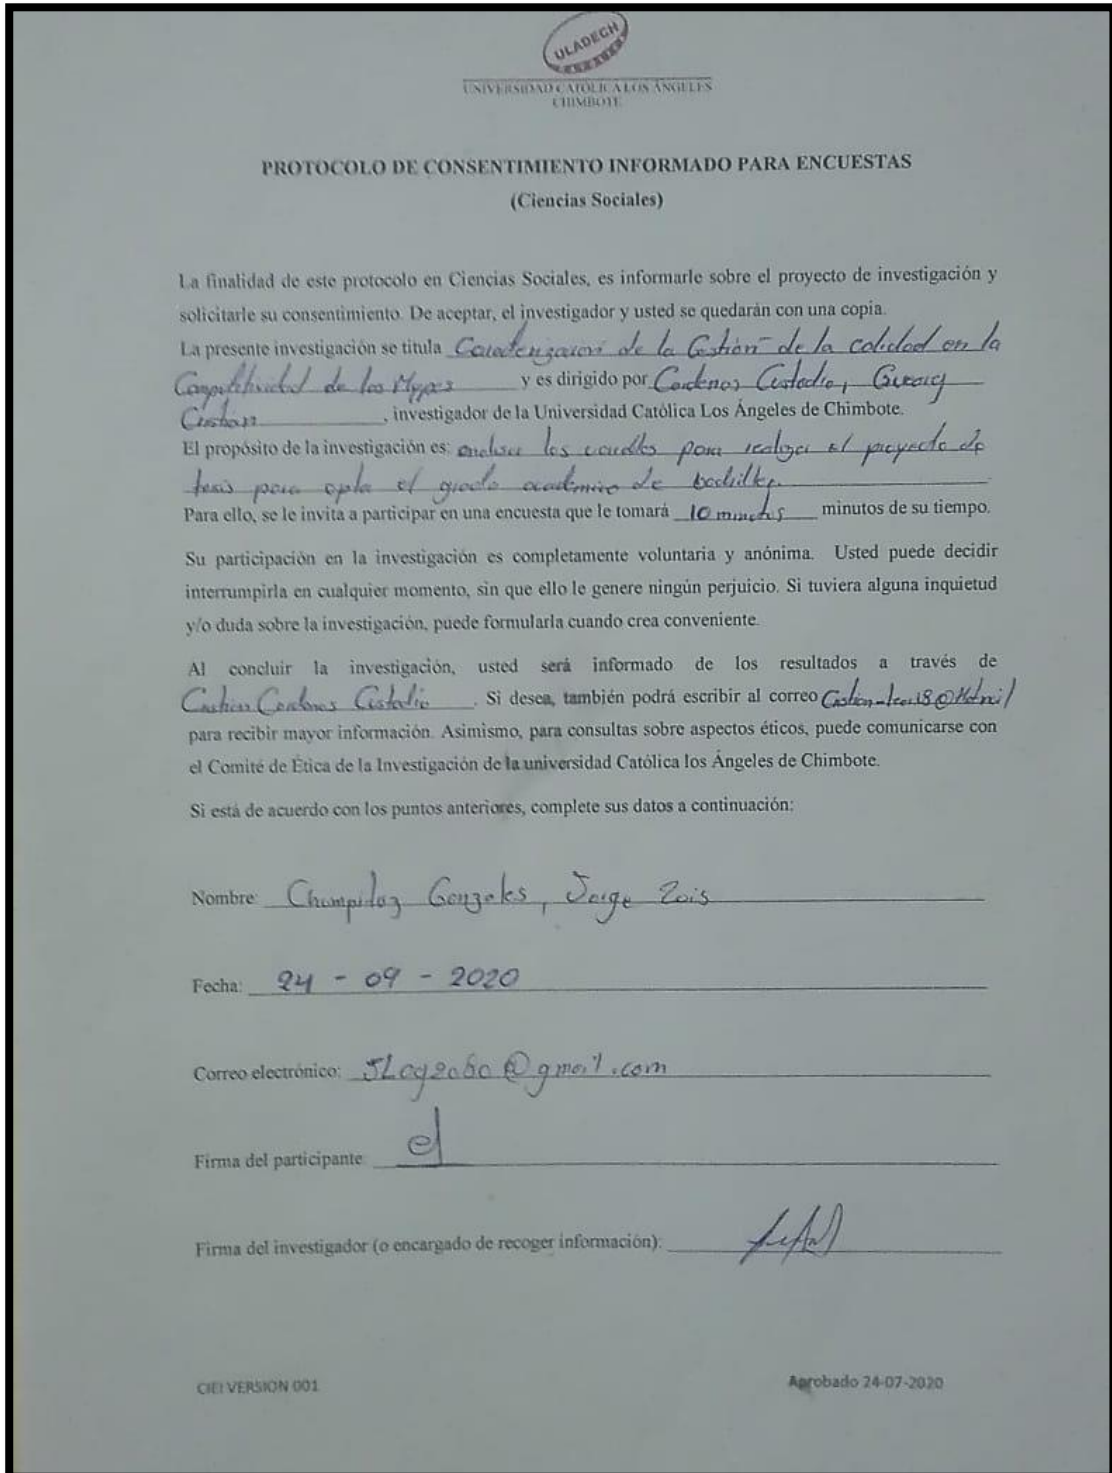 ULADECH
UNIVERSIDAD CATÓLICA LOS ÁNGELES
CHIMBOTE
PROTOCOLO DE CONSENTIMIENTO INFORMADO PARA ENCUESTAS
(Ciencias Sociales)
La finalidad de este protocolo en Ciencias Sociales, es informarle sobre el proyecto de investigación y
solicitarle su consentimiento. De aceptar, el investigador y usted se quedarán con una copia.
La presente investigación se titula de la Gestión de la calidad en la
de las Mypes y es dirigido por Cardenas Custodio,
, investigador de la Universidad Católica Los Ángeles de Chimbote.
El propósito de la investigación es: los para realizar el proyecto de
tesis para el grado academico de
Para ello, se le invita a participar en una encuesta que le tomará 10 minutos minutos de su tiempo.
Su participación en la investigación es completamente voluntaria y anónima. Usted puede decidir
interrumpirla en cualquier momento, sin que ello le genere ningún perjuicio. Si tuviera alguna inquietud
y/o duda sobre la investigación, puede formularla cuando crea conveniente.
Al concluir la investigación, usted será informado de los resultados a través de
Cardenas Custodio. Si desea, también podrá escribir al correo
para recibir mayor información. Asimismo, para consultas sobre aspectos éticos, puede comunicarse con
el Comité de Ética de la Investigación de la universidad Católica los Ángeles de Chimbote.
Si está de acuerdo con los puntos anteriores, complete sus datos a continuación:
Nombre: Gonzales, Jorge
Fecha: 24 - 09 - 2020
Correo electrónico:
Firma del participante:
Firma del investigador (o encargado de recoger información):
CIEI VERSION 001
Aprobado 24-07-2020